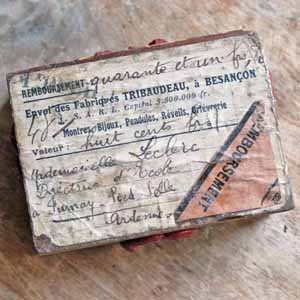 REMBOURSEMENT quarante et un fr
Envoi des Fabriques TRIBAUDEAU, à BESANÇON
S.A.R.L. Capital 3.300.000 fr.
Montres, Bijoux, Pendules, Réveils, Orfèvrerie
Valeur : huit cents
Mademoiselle Leclerc
Directrice d'Ecole
à
Ardennes
REMBOURSEMENT
REMBOURSEMENT